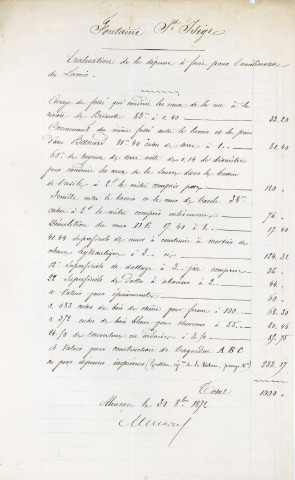 Fontaine St Isige
Evaluation de la dépense à faire pour l'amélioration
du Lavoir.
Curage du fossé qui conduit les eaux de la rue à la
rivière de Briante 83m à 0.40 33.20
Creusement du même fossé entre le lavoir et le pré
Bernard 31m.40 cubes de terre à 1.. 31.40
60m de tuyaux de terre cuite de 0.14 de diamètre
pour conduire les eaux de la source dans le bassin
de l'asile à 2.f le mètre compris pose 120 "
Fouille entre le lavoir et le mur de l'asile 38m
cubes à 2f le mètre compris enlèvement 76 "
Démolition du mur D.E 17.40 à 1.. 17.40
41.44 superficiels de murs à construire à mortier de
chaux hydraulique à 3.. 124.32
12m superficiels de dallage à 3.. pose comprise 36 "
22 superficiels de dalles à abaisser à 2.. 44 "
à valoir pour épuisements 60 "
0,683 cubes de bois de chêne pour ferme à 100.. 68.30
0,372 cubes de bois blanc pour chevrons à 55.. 20.46
de couverture en ardoises à 2.50 35.75
à valoir pour construction de baignoires A B C
ou pour dépenses imprévues 333.17
Total 1000 "
Alençon le 30 8bre 1872